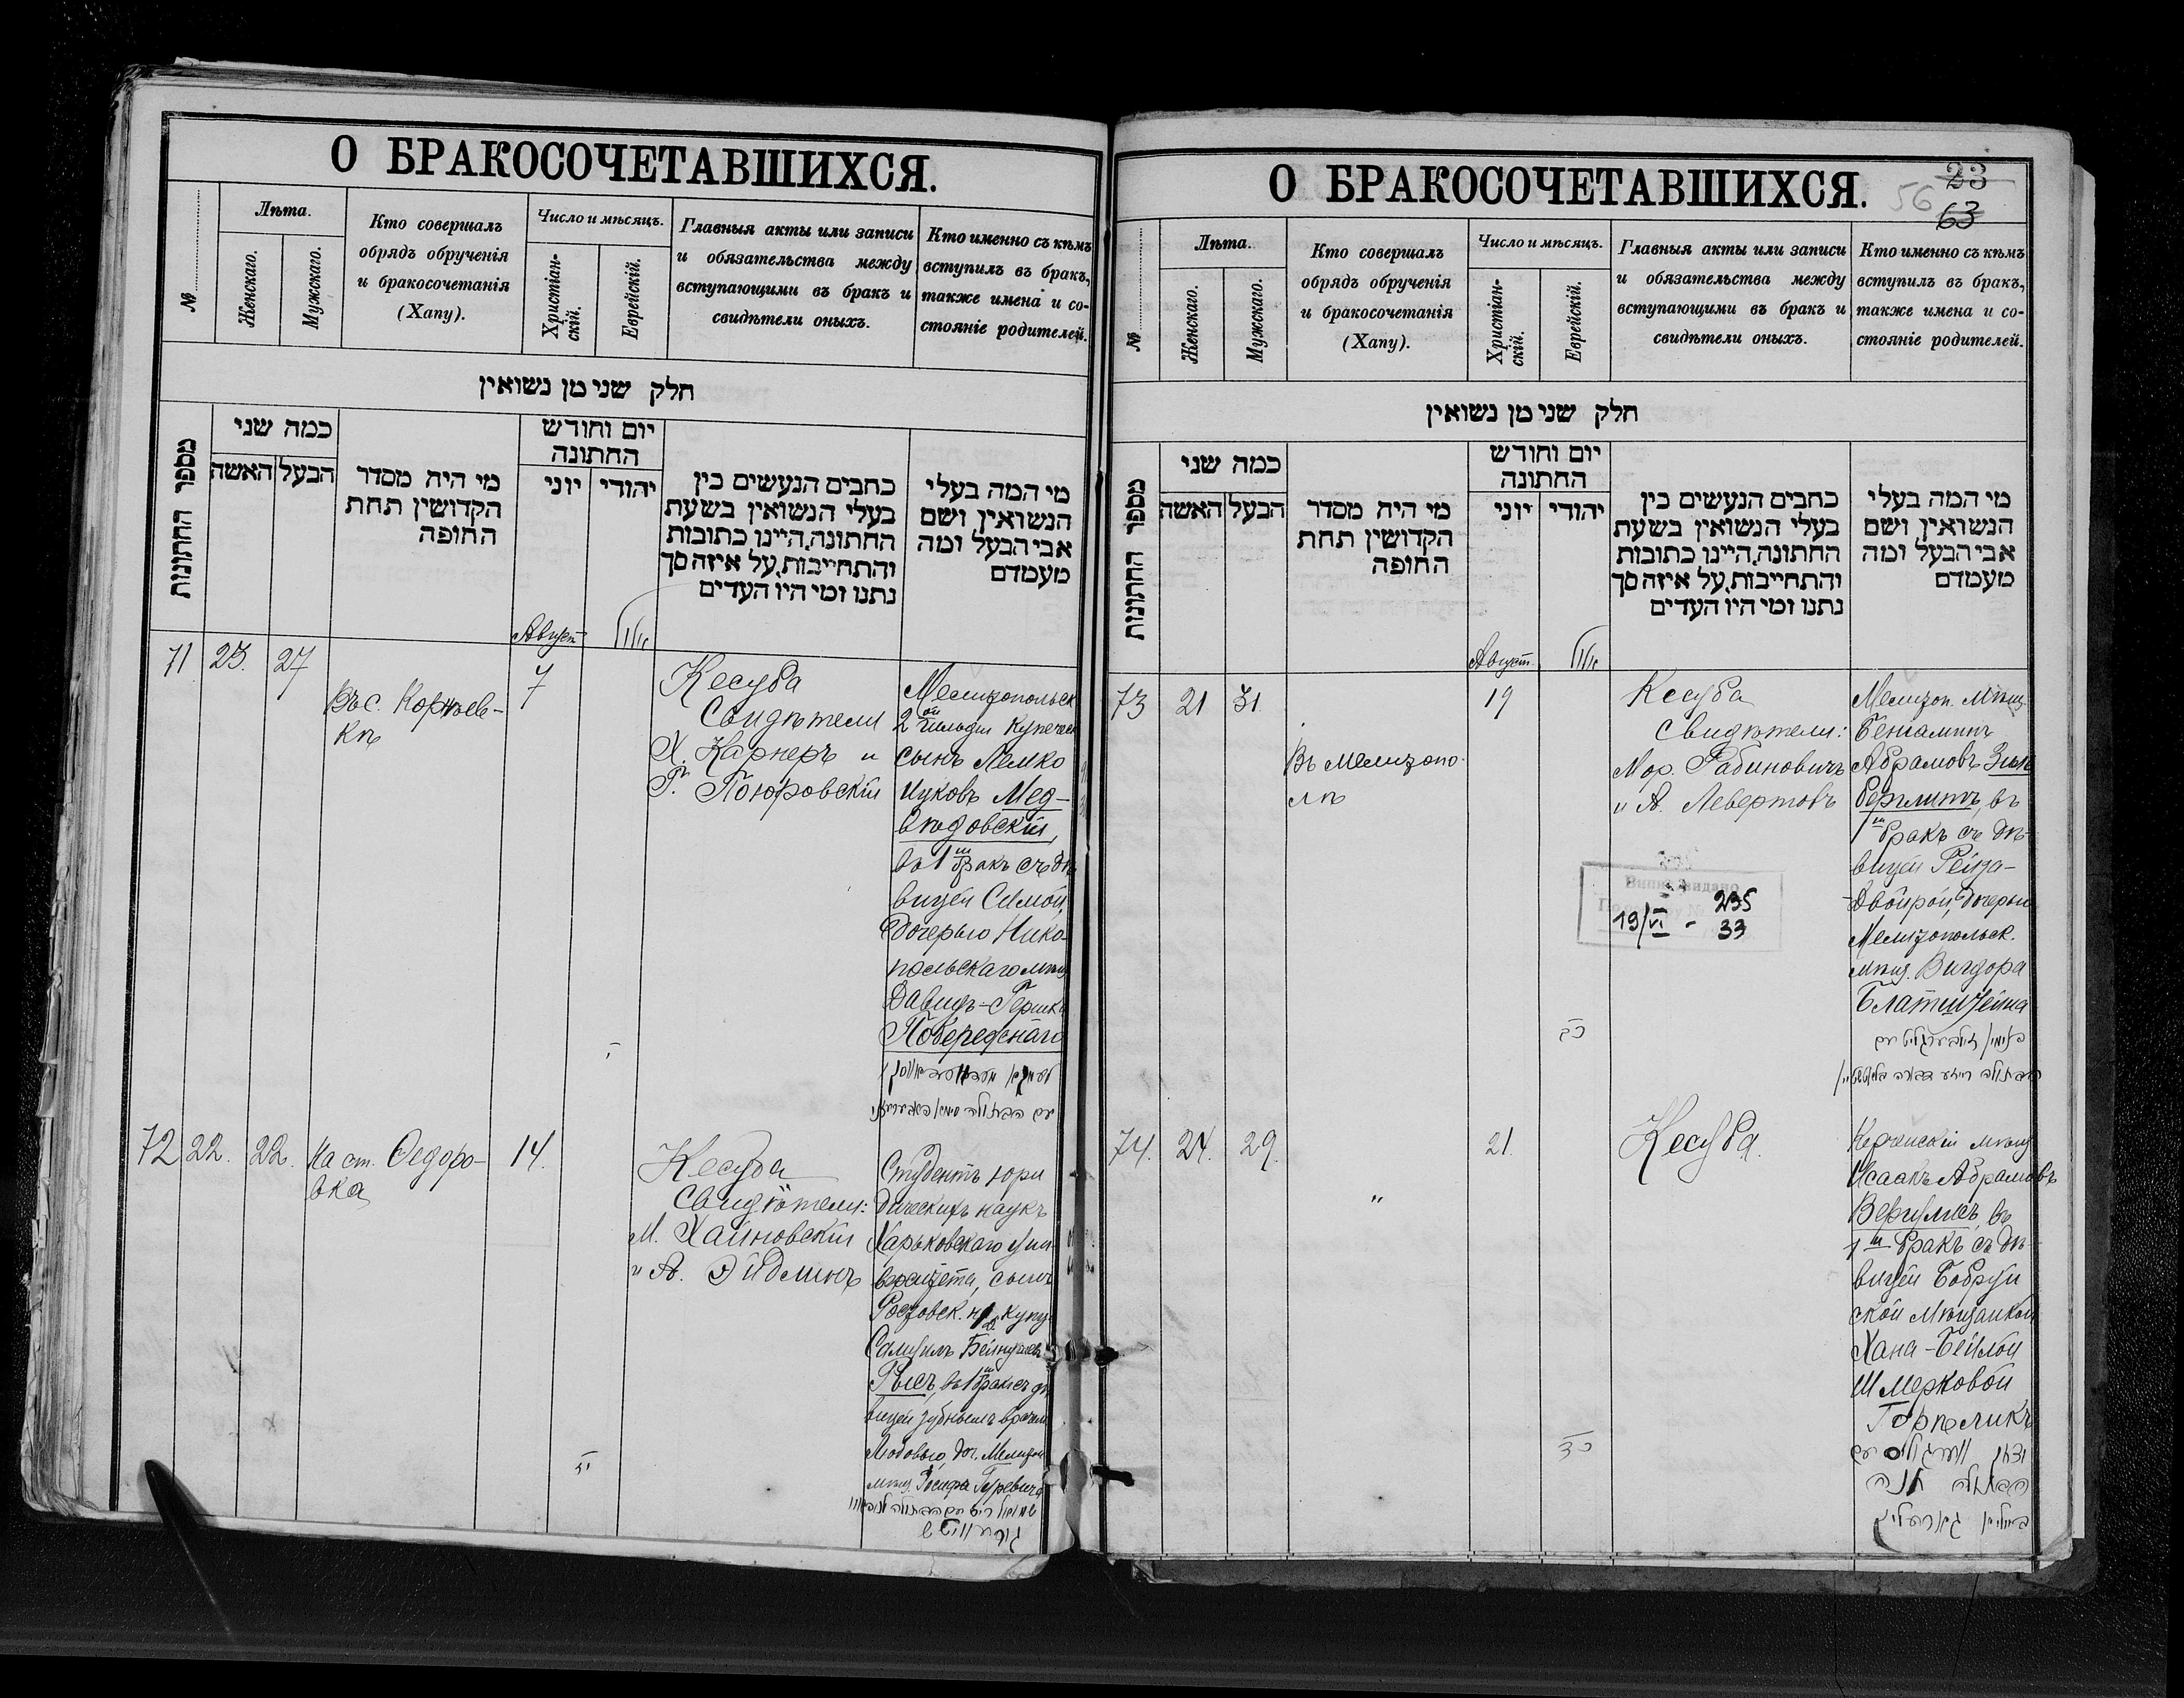 О БРАКОСОЧЕТАВШИХСЯ.
№
Лѣта.
Женскаго.
Мужскаго.
Кто совершалъ
обрядъ обрученія
и бракосочетанія
(Хапу).
Число и мѣсяцъ.
Христіан-
скій.
Еврейскій.
Главныя акты или записи
и обязательства между
вступающими въ бракъ и
свидѣтели оныхъ.
Кто именно съ кѣмъ
вступилъ въ бракъ,
также имена и со-
стояніе родителей.
חלק שני מן נשואין
מספר החתונות
כמה שני
האשה
הבעל
מי היה מסדר
הקדושין תחת
החופה
יום וחודש
החתונה
יוני
יהודי
כתבים הנעשים בין
בעלי הנשואין בשעת
החתונה, היינו כתובות
והתחייבות, על איזה סך
נתנו ומי היו העדים
מי המה בעלי
הנשואין ושם
אבי הבעל ומה
מעמדם
Август
אלול
71
23.
27
Въ с. Корнѣев-
кѣ
7
Кесуба
Свидѣтели
Х. Карнеръ и
Г. Поюровскій
Мелитопольск
2ой гильдіи купеческ
сынъ Лемко
Ицковъ Мед-
вѣдовскій,
въ 1ый бракъ съ дѣ
вицей Симой,
дочерью Нико-
польскаго мѣщ
Давидъ-Гершка
Побереднаго
72
22.
22.
На ст. Ѳедоро-
вка
14.
Кесуба
Свидѣтели:
М. Хайновскій
и А. Эйдлинъ
Студентъ юри
дическихъ наукъ
Харьковскаго Уни
верситета, сынъ
Ростовск. н/Д купц
Самуилъ
Рысъ, въ 1й бракъ съ дѣ
вицей зубнымъ врачем
Любовью, доч. Мелитоп
мѣщ. Іосифа Гуревича
О БРАКОСОЧЕТАВШИХСЯ.
23
56
63
№
Лѣта.
Женскаго.
Мужскаго.
Кто совершалъ
обрядъ обрученія
и бракосочетанія
(Хапу).
Число и мѣсяцъ.
Христіан-
скій.
Еврейскій.
Главныя акты или записи
и обязательства между
вступающими въ бракъ и
свидѣтели оныхъ.
Кто именно съ кѣмъ
вступилъ въ бракъ,
также имена и со-
стояніе родителей.
חלק שני מן נשואין
מספר החתונות
כמה שני
האשה
הבעל
מי היה מסדר
הקדושין תחת
החופה
יום וחודש
החתונה
יוני
יהודי
כתבים הנעשים בין
בעלי הנשואין בשעת
החתונה, היינו כתובות
והתחייבות, על איזה סך
נתנו ומי היו העדים
מי המה בעלי
הנשואין ושם
אבי הבעל ומה
מעמדם
Август
אלול
73
21
31.
Въ Мелитопо-
лѣ
19
Кесуба
Свидѣтели:
Мор. Рабиновичъ
и А. Левертовъ
19/VI - 235
33
Мелитоп. мѣщ.
Беніаминъ
Абрамовъ Зиль
берглитъ, въ
1й бракъ съ дѣ-
вицей Рейза-
Двойрой, дочерью
Мелитопольск.
мѣщ. Вигдора
Блатштейна
כב
74.
24.
29.
"
21.
Кесуба.
Керченскій мѣщ
Исаакъ Абрамовъ
въ
1й бракъ съ дѣ-
вицей Бобруй
ской мѣщанкой
Хана-Бейлой
Шмерковой
Горѣликъ
כד